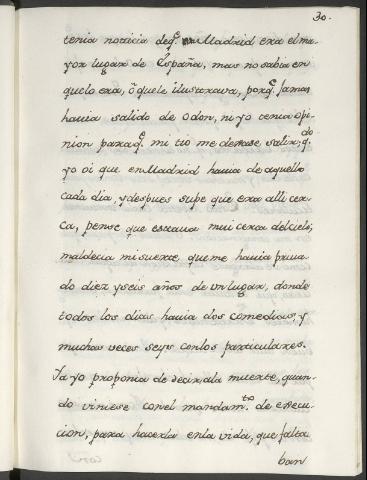 30.
tenia noticia deq.e en Madrid era el ma-
yor lugar de España, mas no sabia en
quelo era, ô quele ilustrava, porq.e Jamas
havia salido de Odon, ni yo tenia opi-
nion paraq.e mi tio me dexase salir; q.do
yo oi que en Madrid havia de aquello
cada dia, y despues supe que era alli cer-
ca, pense que estava mui cerca delcielo;
maldecia mi suerte queme havia priva-
do diez yseis años de un lugar, donde
todos los dias havia dos comedias, y
muchas veces seys conlos particulares.
Ya yo proponia de decir ala muerte, quan-
do viniese conel mandam.to de execu-
cion, para hacerla enla vida, que falta
ban